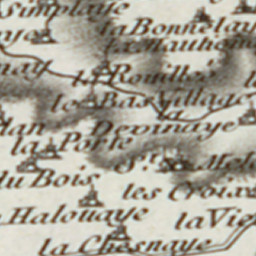 Simplaye
la Bonnelay
la Mauthom
nay
la Rouille
le Bas Village
la
Depinaye
la Porte
St
Mel
du Bois
les Croix
Halouaye
la Vie
la Chesnaye